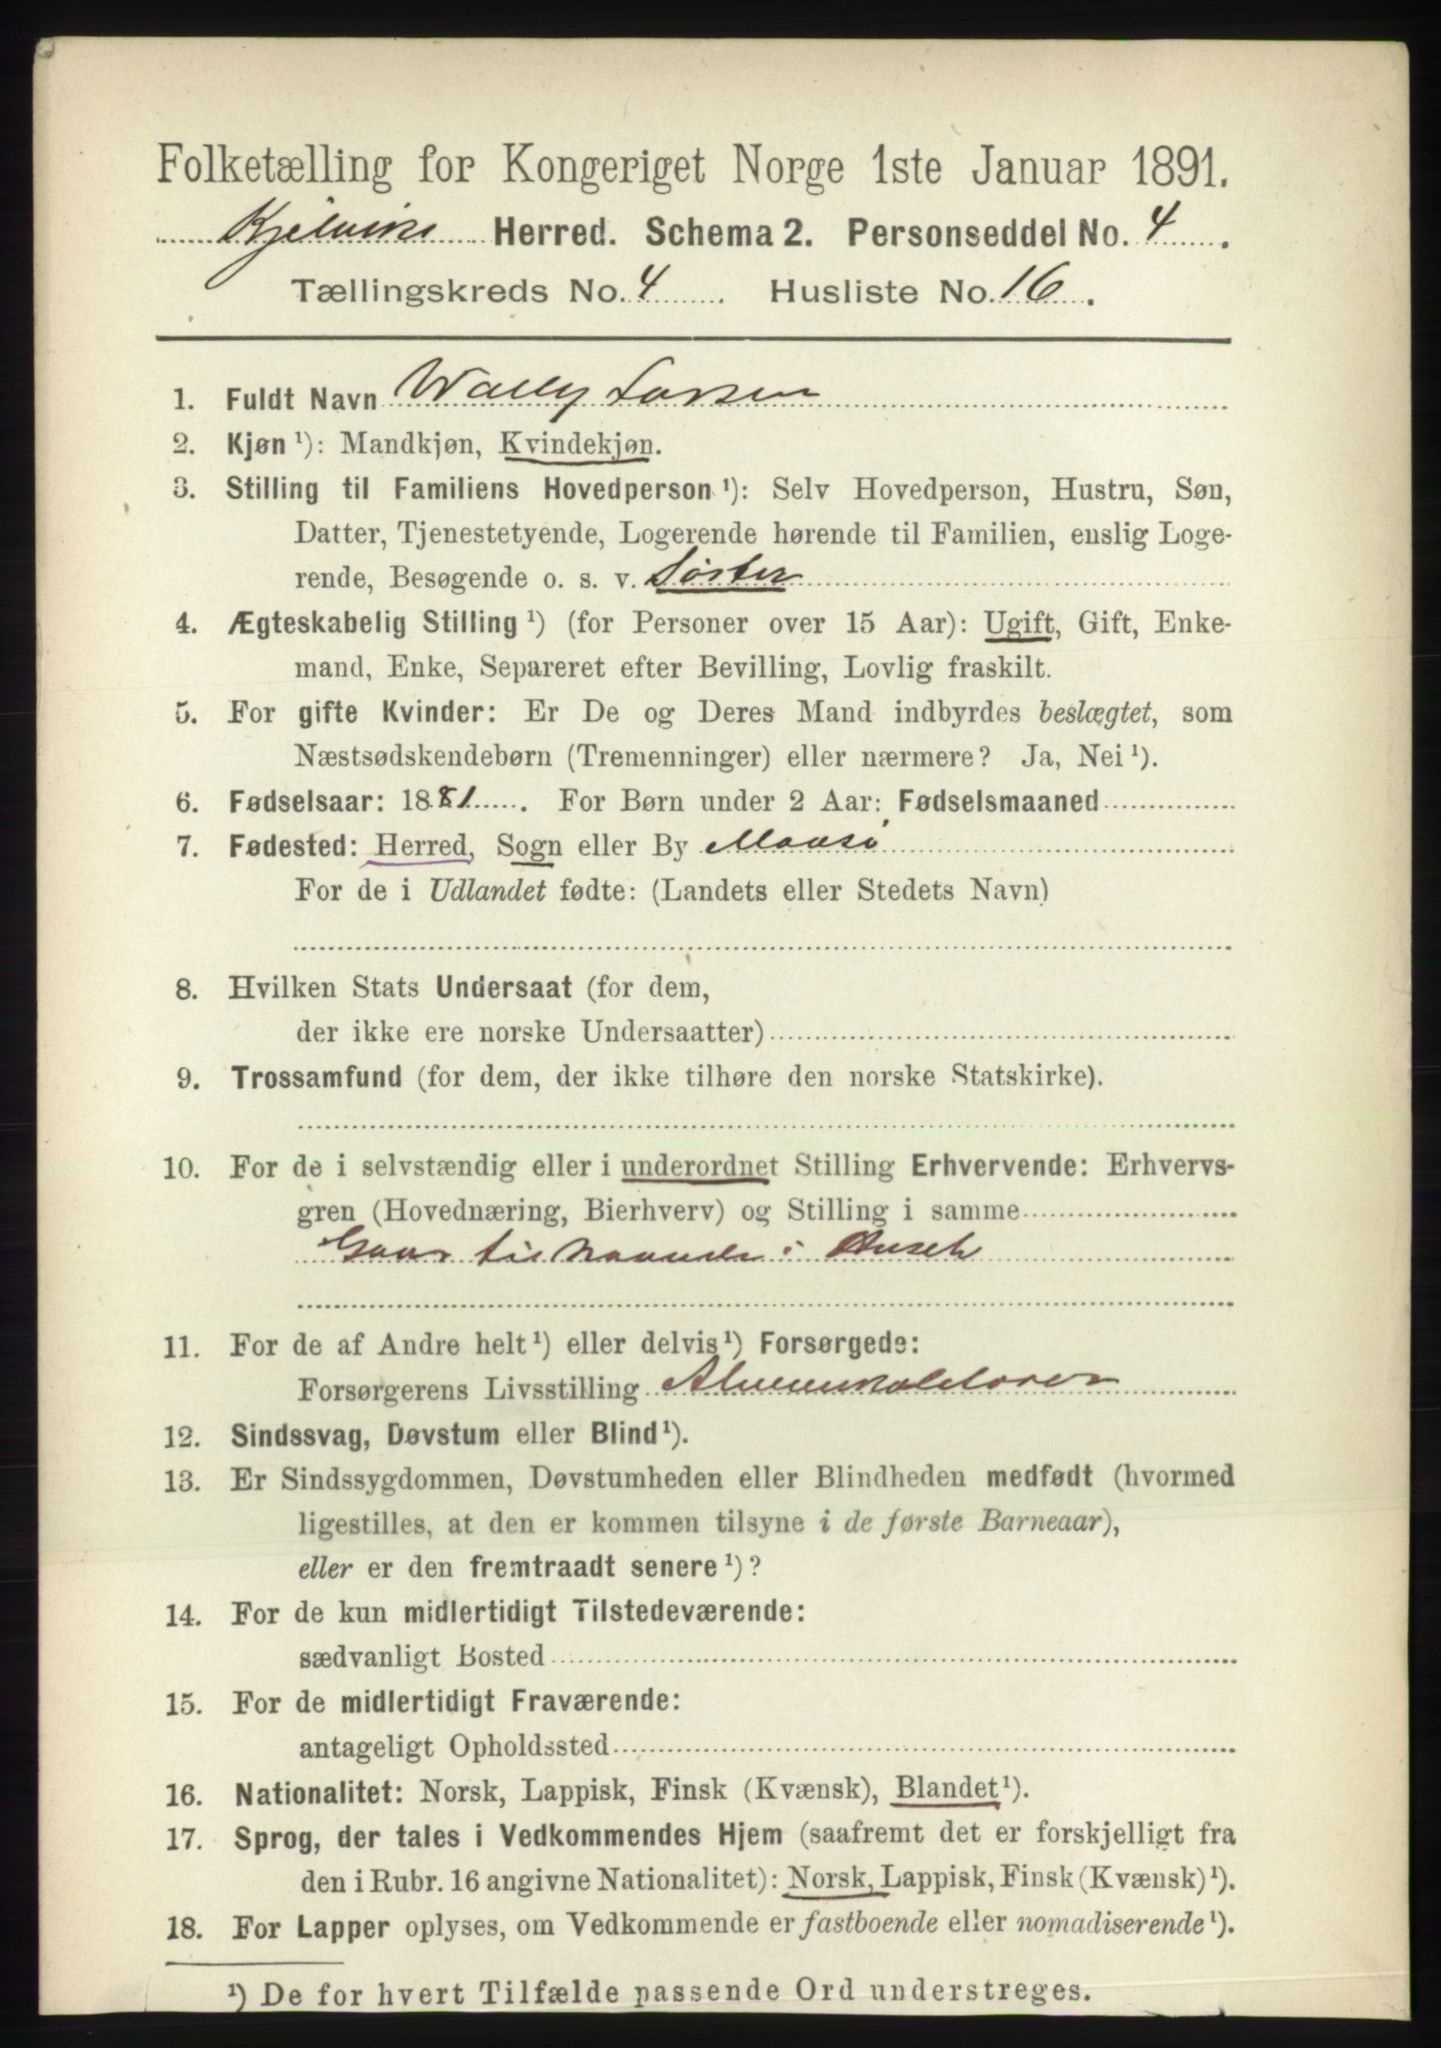 Folketælling for Kongeriget Norge 1ste Januar 1891.
Kjelvik Herred. Schema 2. Personseddel No. 4.
Tællingskreds No. 4. Husliste No. 16.
1. Fuldt Navn Wally Larsen
2. Kjøn ¹): Mandkjøn, Kvindekjøn.
3. Stilling til Familiens Hovedperson ¹): Selv Hovedperson, Hustru, Søn,
Datter, Tjenestetyende, Logerende hørende til Familien, enslig Loge-
rende, Besøgende o. s. v. Søster
4. Ægteskabelig Stilling ¹) (for Personer over 15 Aar): Ugift, Gift, Enke-
mand, Enke, Separeret efter Bevilling, Lovlig fraskilt.
5. For gifte Kvinder: Er De og Deres Mand indbyrdes beslægtet, som
Næstsødskendebørn (Tremenninger) eller nærmere? Ja, Nei ¹).
6. Fødselsaar: 1881. For Børn under 2 Aar: Fødselsmaaned
7. Fødested: Herred, Sogn eller By Maasø
For de i Udlandet fødte: (Landets eller Stedets Navn)
8. Hvilken Stats Undersaat (for dem,
der ikke ere norske Undersaatter)
9. Trossamfund (for dem, der ikke tilhøre den norske Statskirke).
10. For de i selvstændig eller i underordnet Stilling Erhvervende: Erhvervs-
gren (Hovednæring, Bierhverv) og Stilling i samme
Gaar til haande i Huset
11. For de af Andre helt ¹) eller delvis ¹) Forsørgede:
Forsørgerens Livsstilling
12. Sindssvag, Døvstum eller Blind ¹).
13. Er Sindssygdommen, Døvstumheden eller Blindheden medfødt (hvormed
ligestilles, at den er kommen tilsyne i de første Barneaar),
eller er den fremtraadt senere ¹)?
14. For de kun midlertidigt Tilstedeværende:
sædvanligt Bosted
15. For de midlertidigt Fraværende:
antageligt Opholdssted
16. Nationalitet: Norsk, Lappisk, Finsk (Kvænsk), Blandet ¹).
17. Sprog, der tales i Vedkommendes Hjem (saafremt det er forskjelligt fra
den i Rubr. 16 angivne Nationalitet): Norsk, Lappisk, Finsk (Kvænsk) ¹).
18. For Lapper oplyses, om Vedkommende er fastboende eller nomadiserende ¹).
¹) De for hvert Tilfælde passende Ord understreges.